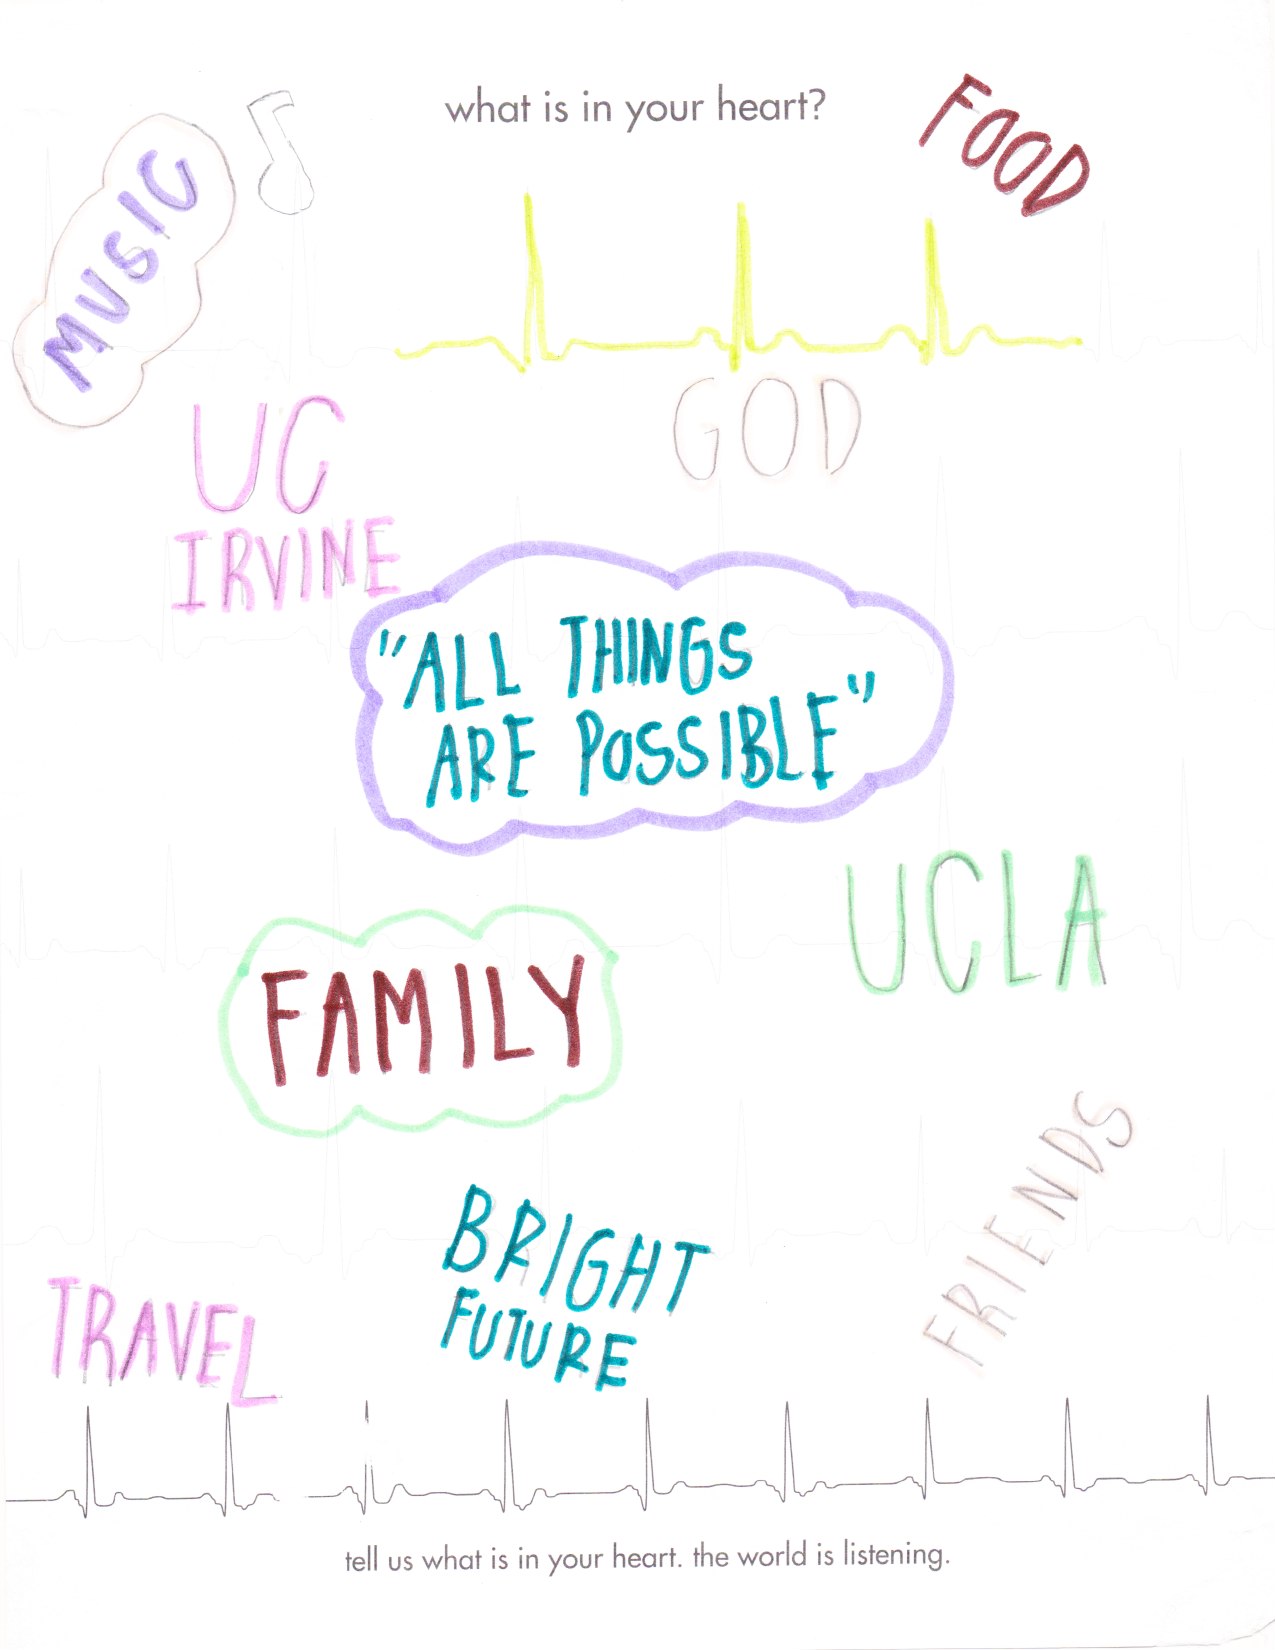 what is in your heart?
FOOD
MUSIC
GOD
UC
IRVINE
"ALL THINGS
ARE POSSIBLE"
UCLA
FAMILY
FRIENDS
BRIGHT
FUTURE
TRAVEL
tell us what is in your heart. the world is listening.